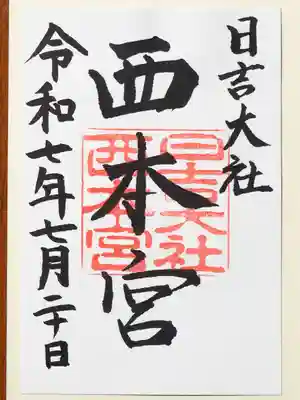 日吉大社
西本宮
令和七年七月二十日
日吉大社
西本宮